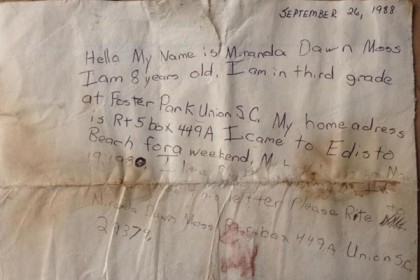 SEPTEMBER 26, 1988
Hello My Name is Miranda Dawn Moss
I am 8 years old. I am in third grade
at Foster Park Union S.C. My home adress
is Rt 5 box 449A I came to Edisto
Beach for a weekend,
letter Please Rite
Miranda Dawn Moss Rt 5 box 449A Union S.C.
29379